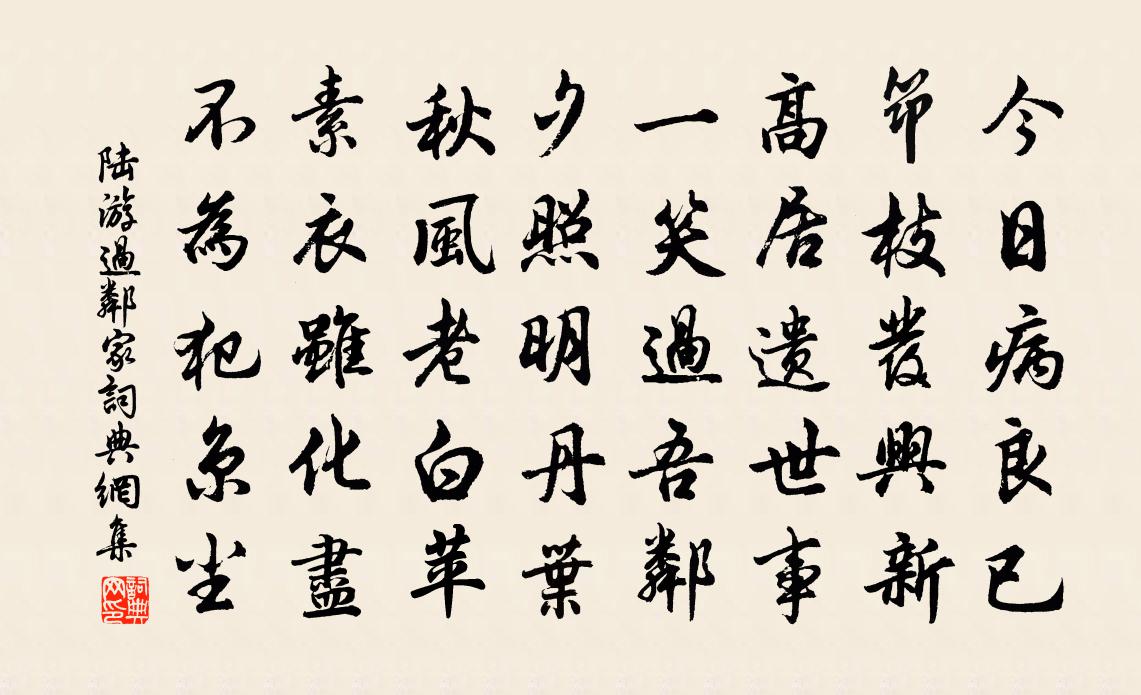 今日病良已
筇枝發興新
高居遺世事
一笑過吾鄰
夕照明丹葉
秋風老白苹
素衣雖化盡
不為犯京尘
陆游過鄰家詞典網集
詞典
网印